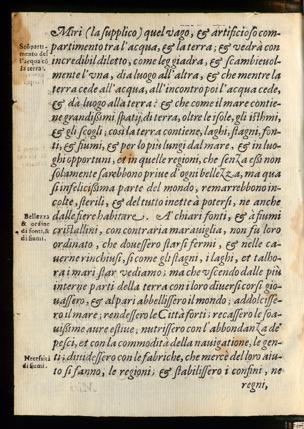 Miri (la supplico) quel vago, & artificioso com-
Scōparti-
mento del
l'acqua cō
la terra.
partimento tra l'acqua, & la terra; & vedrà con
incredibil diletto, come leggiadra, & scambieuol-
mente l'vna, dia luogo all'altra, & che mentre la
terra cede all'acqua, all'incontro poi l'acqua cede,
& dà luogo alla terra: & che come il mare contie-
ne grandissimi spatij di terra, oltre le isole, gli isthmi,
& gli scogli; così la terra contiene, laghi, stagni, fon-
ti, & fiumi, & per lo più lungi dal mare, & in luo-
ghi opportuni, et in quelle regioni, che senza essi non
solamente sarebbono priue d'ogni bellezza, ma qua
si infelicissima parte del mondo, remarrebbono in-
colte, sterili, & del tutto inette à potersi, ne anche
Bellezza
& ordine
di fonti, &
di fiumi.
dalle fiere habitare. A chiari fonti, & a fiumi
cristallini, con contraria marauiglia, non fu loro
ordinato, che douessero starsi fermi, & nelle ca-
uerne rinchiusi, si come gli stagni, i laghi, et talho-
ra i mari star vediamo; ma che vscendo dalle più
interne parti della terra con loro diuersi corsi gio-
uassero, & al pari abbellissero il mondo; addolcisse-
ro il mare; rendessero le Città forti; recassero le soa-
uissime aure estiue; nutrissero con l'abbondanza de'
pesci, et con la commodità della nauigatione, le gen-
Necessità
di fiumi.
ti; diuidessero con le fabriche, che mercè del loro aiu-
to si fanno, le regioni; & stabilissero i confini, ne
regni,